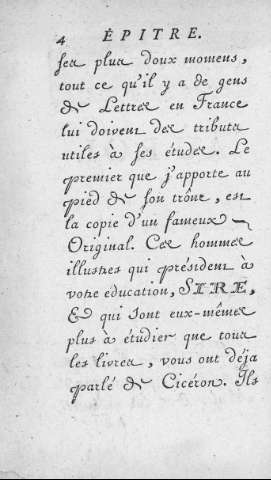 4 ÉPITRE.
ses plus doux momens,
tout ce qu'il y a de gens
de Lettres en France
lui doivent des tributs
utiles à ses études. Le
premier que j'apporte au
pied de son trône, est
la copie d'un fameux
Original. Ces hommes
illustres qui président à
votre éducation, SIRE,
& qui sont eux-mêmes
plus à étudier que tous
les livres, vous ont déja
parlé de Cicéron. Ils